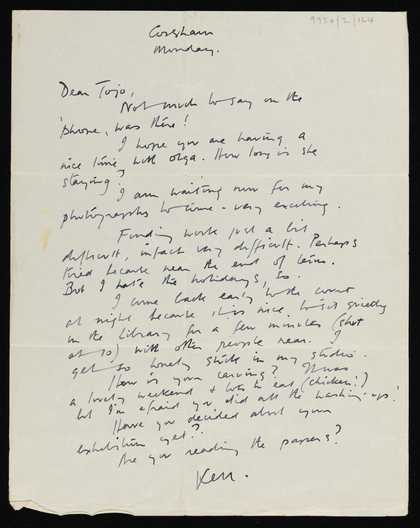 9720/2/124
Corsham
Monday.
Dear Jojo,
Not much to say on the
'phone, was there!
I hope you are having a
nice time with Olga. How long is she
staying?
I am waiting now for my
photographs to come - very exciting.
Finding work just a bit
difficult, in fact very difficult. Perhaps
tired because near the end of term.
But I hate the holidays, so.
I come back early to the court
at night because it is nice to sit quietly
in the Library for a few minutes (shut
at 10) with other people near. I
get so lonely stuck in my studio.
How is your carving? It was
a lovely weekend & lots to eat (chicken!)
but I'm afraid you did all the washing-up!
Have you decided about your
exhibition yet?
Are you reading the papers?
Ken.